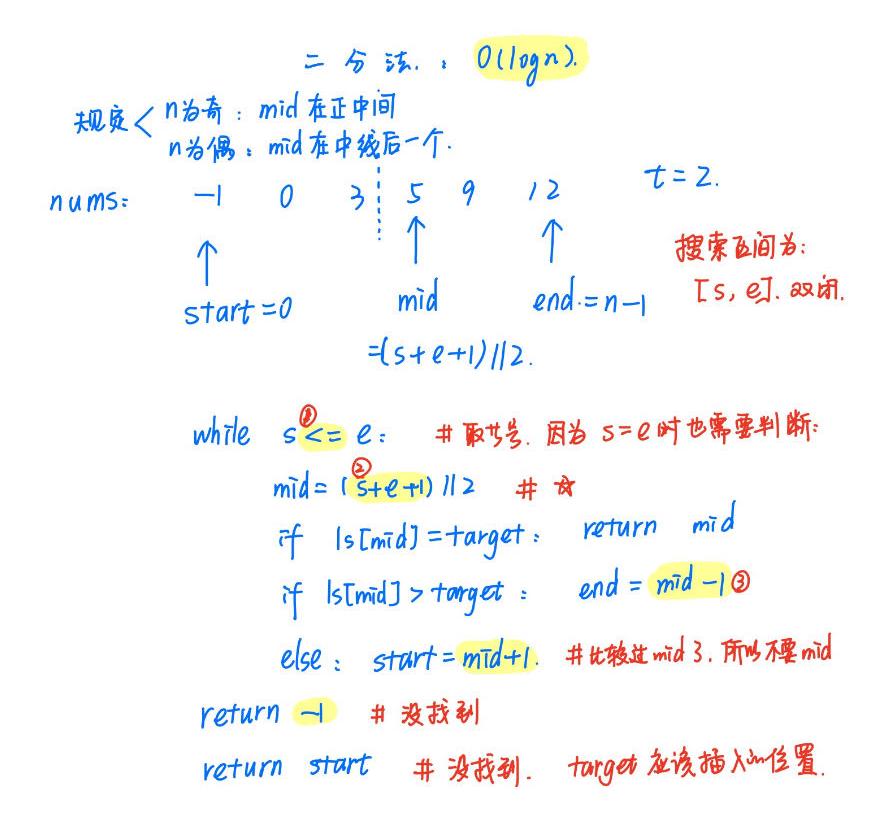 二分法：O(logn).
规定< n为奇：mid在正中间
n为偶：mid在中线后一个.
nums: -1 0 3 5 9 12 t=2.
搜索区间为:
[s, e]. 双闭.
start=0 mid end=n-1
=(s+e+1)//2.
while s <= e: ① # 取等号. 因为 s=e时也需要判断:
mid=(s+e+1)//2 ② # ☆
if ls[mid]=target: return mid
if ls[mid]>target: end = mid-1 ③
else: start=mid+1. #比较过mid了. 所以不要mid
return -1 # 没找到
return start # 没找到. target应该插入的位置.